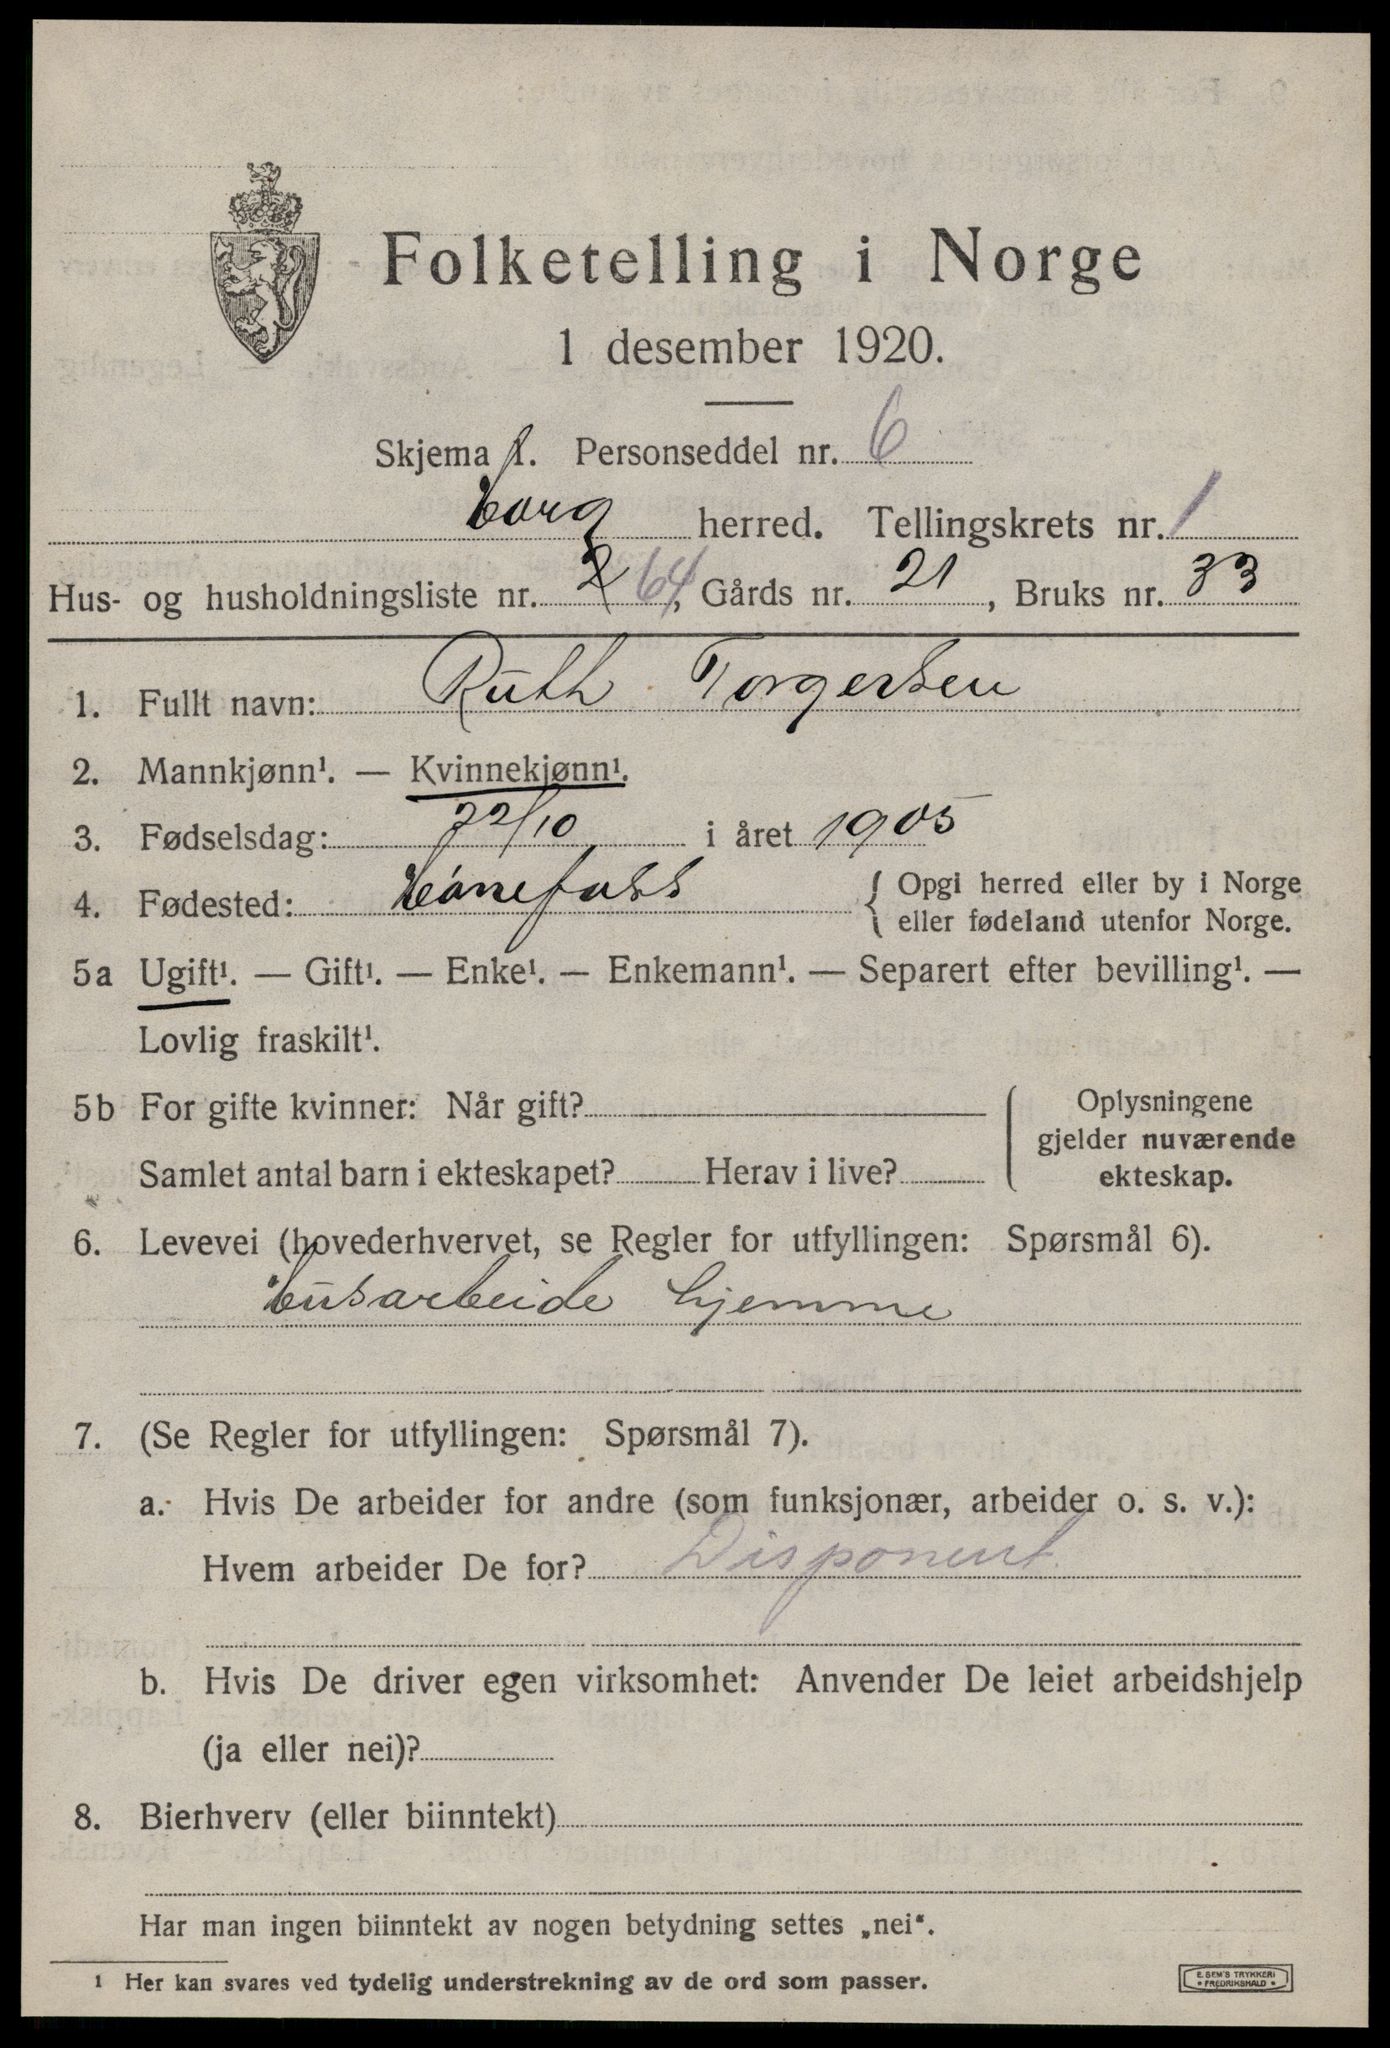 Folketelling i Norge
1 desember 1920.
Skjema 1. Personseddel nr. 6
Borg herred. Tellingskrets nr. 1
Hus- og husholdningsliste nr. 2 64, Gårds nr. 21, Bruks nr. 33
1. Fullt navn: Ruth Torgersen
2. Mannkjønn¹. — Kvinnekjønn¹.
3. Fødselsdag: 22/10 i året 1905
4. Fødested: Hönefoss { Opgi herred eller by i Norge
eller fødeland utenfor Norge.
5a Ugift¹. — Gift¹. — Enke¹. — Enkemann¹. — Separert efter bevilling¹. —
Lovlig fraskilt¹.
5b For gifte kvinner: Når gift?
Samlet antal barn i ekteskapet? Herav i live?
Oplysningene
gjelder nuværende
ekteskap.
6. Levevei (hovederhvervet, se Regler for utfyllingen: Spørsmål 6).
Husarbeide hjemme
7. (Se Regler for utfyllingen: Spørsmål 7).
a. Hvis De arbeider for andre (som funksjonær, arbeider o. s. v.):
Hvem arbeider De for? Disponent
b. Hvis De driver egen virksomhet: Anvender De leiet arbeidshjelp
(ja eller nei)?
8. Bierhverv (eller biinntekt)
Har man ingen biinntekt av nogen betydning settes „nei“.
1 Her kan svares ved tydelig understrekning av de ord som passer.
E. SEM'S TRYKKERI
* FREDRIKSHALD *